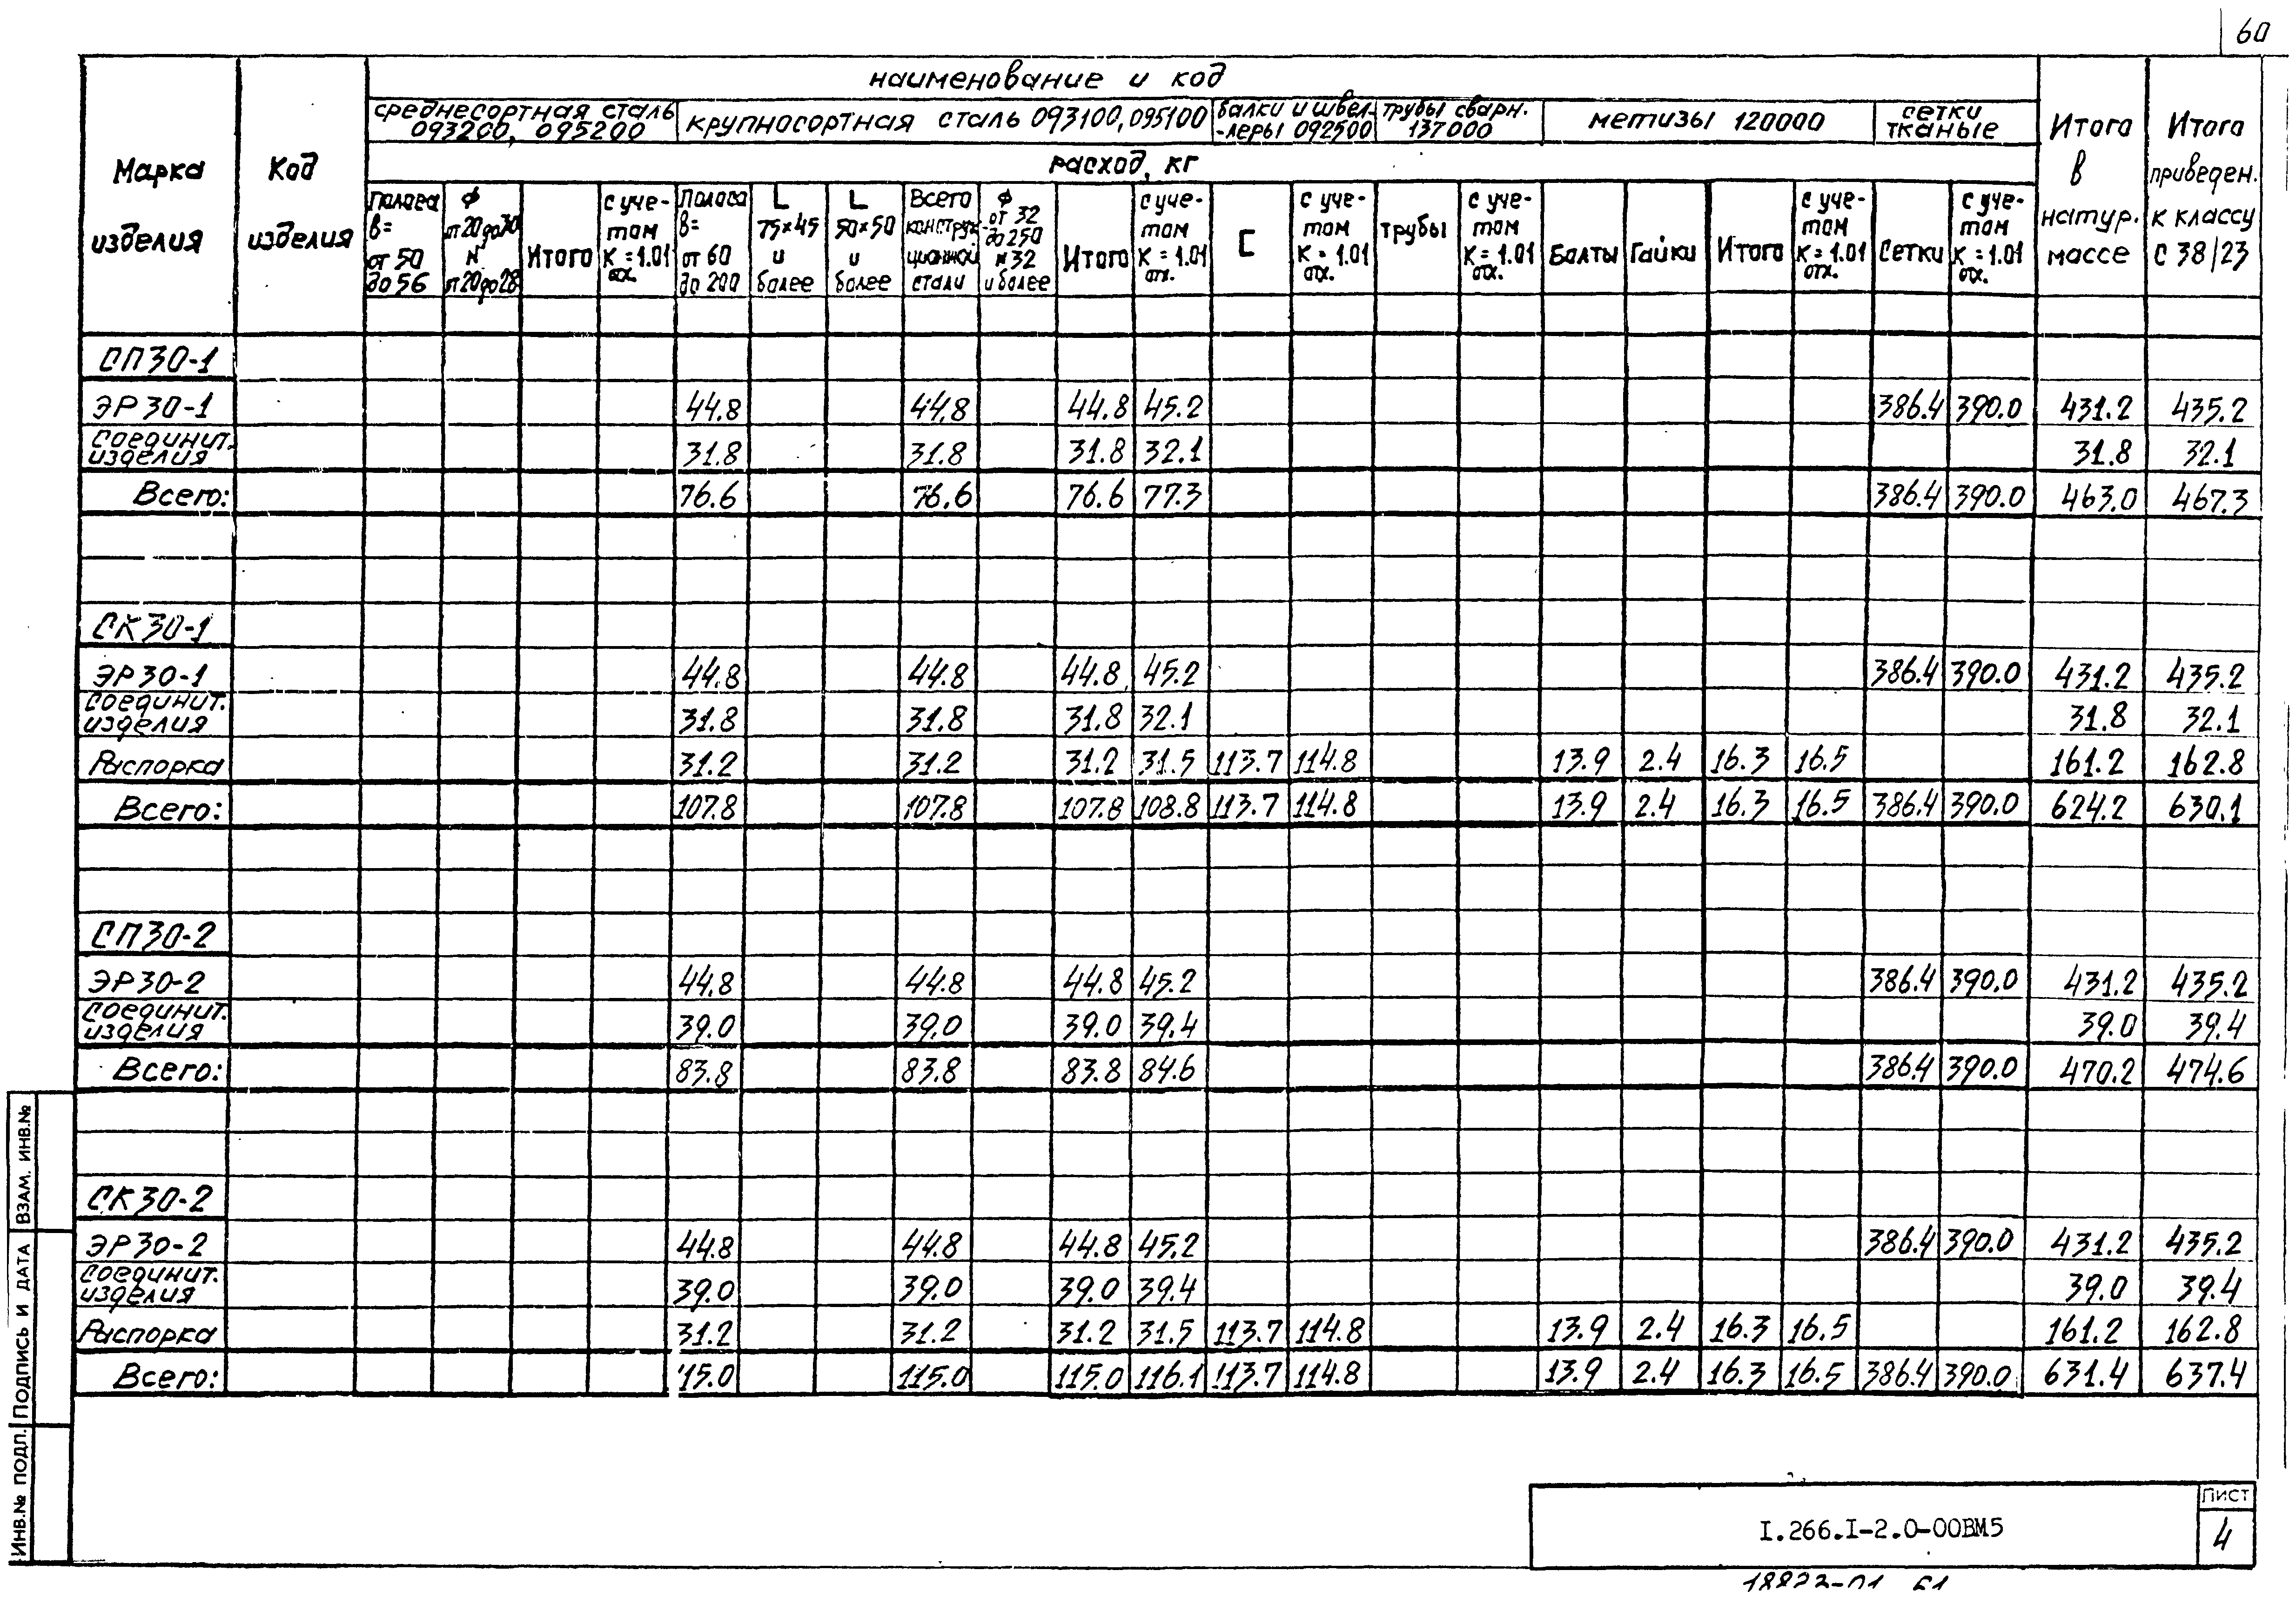 60
наименование и код
среднесортная сталь 093200, 095200
крупносортная сталь 093100, 095100
балки и швел-
-леры 092500
трубы сварн.
137000
метизы 120000
сетки
тканые
расход, кг
Марка
изделия
Код
изделия
Итого
в
натур.
массе
Итого
приведен.
к классу
С 38/23
полоса
в=
от 50
до 56
Ф
от 20 до 30
и
от 20 до 28
Итого
с уче-
том
К=1.01
отх.
Полоса
в=
от 60
до 200
L
75×45
и
более
L
50×50
и
более
Всего
конструк
ционной
стали
Ф
от 32
до 250
и 32
и более
Итого
с уче-
том
К=1.01
отх.
С
с уче-
том
К=1.01
отх.
трубы
с уче-
том
К=1.01
отх.
Болты
Гайки
Итого
с уче-
том
К=1.01
отх.
Сетки
с уче-
том
К=1.01
отх.
СП30-1
ЭР30-1 44.8 44.8 44.8 45.2 386.4 390.0 431.2 435.2
Соединит.
изделия 31.8 31.8 31.8 32.1 31.8 32.1
Всего: 76.6 76.6 76.6 77.3 386.4 390.0 463.0 467.3
СК30-1
ЭР30-1 44.8 44.8 44.8 45.2 386.4 390.0 431.2 435.2
Соединит.
изделия 31.8 31.8 31.8 32.1 31.8 32.1
Распорка 31.2 31.2 31.2 31.5 113.7 114.8 13.9 2.4 16.3 16.5 161.2 162.8
Всего: 107.8 107.8 107.8 108.8 113.7 114.8 13.9 2.4 16.3 16.5 386.4 390.0 624.2 630.1
СП30-2
ЭР30-2 44.8 44.8 44.8 45.2 386.4 390.0 431.2 435.2
Соединит.
изделия 39.0 39.0 39.0 39.4 39.0 39.4
Всего: 83.8 83.8 83.8 84.6 386.4 390.0 470.2 474.6
СК30-2
ЭР30-2 44.8 44.8 44.8 45.2 386.4 390.0 431.2 435.2
Соединит.
изделия 39.0 39.0 39.0 39.4 39.0 39.4
Распорка 31.2 31.2 31.2 31.5 113.7 114.8 13.9 2.4 16.3 16.5 161.2 162.8
Всего: 115.0 115.0 115.0 116.1 113.7 114.8 13.9 2.4 16.3 16.5 386.4 390.0 631.4 637.4
Инв.№ подл. Подпись и дата Взам. инв.№
I.266.I-2.0-00ВМ5
Лист
4